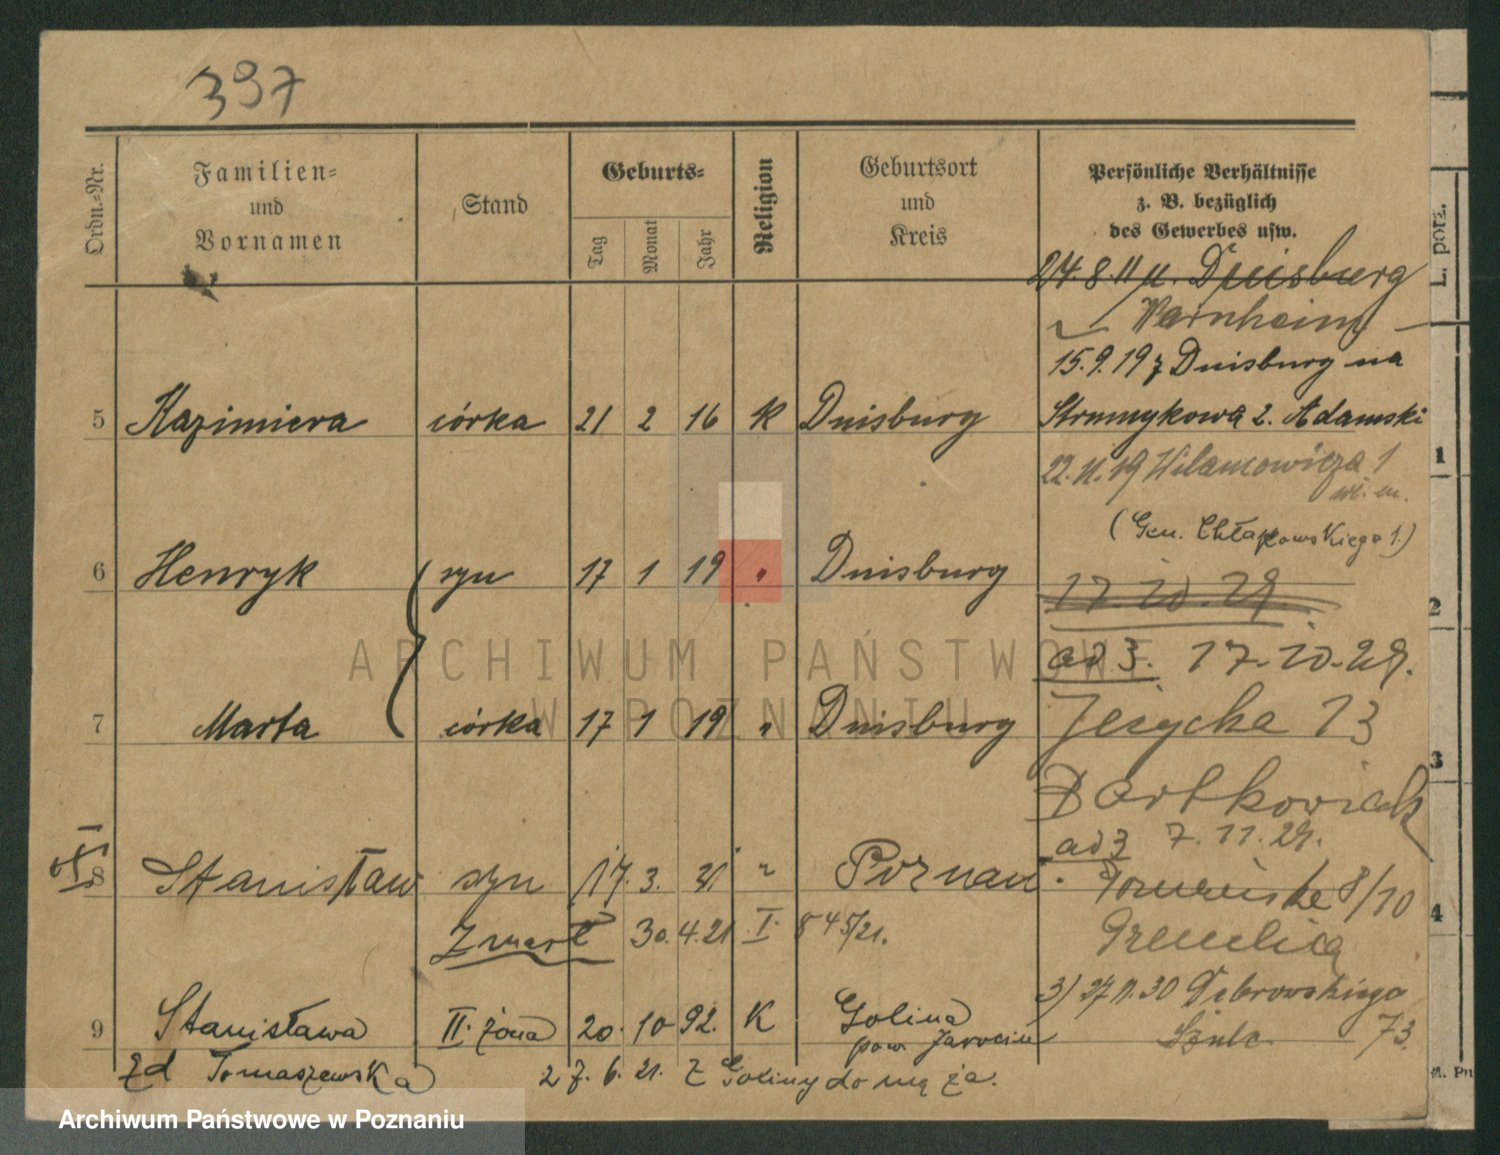 397
Ordn.-Nr.
Familien-
und
Vornamen
Stand
Geburts-
Tag
Monat
Jahr
Religion
Geburtsort
und
Kreis
Persönliche Verhältnisse
z. B. bezüglich
des Gewerbes usw.
24.8.11 n. Duisburg
15.9.19 z Duisburg na
5 Kazimiera córka 21 2 16 K Duisburg
Strumykowa 2. Adamski
22.11.19 Wilamowicza 1
(Gen. Chłapowskiego 1.)
6 Henryk syn 17 1 19 " Duisburg
17.10.29.
ad 3. 17.10.29.
7 Marta córka 17 1 19 " Duisburg
13
Bartkowiak
ad 3 7.11.29.
8 Stanisław syn 17. 3. 21 " Poznań.
8/10
Zmarł 30. 4. 21 I. 845/21.
3) 27.11.30 Dąbrowskiego
73.
Szulc
9 Stanisława II. żona 20. 10 92. K Golina
pow. Jarocin
zd Tomaszewska 27. 6. 21. z Goliny do męża.
L. porz.
1
2
3
4
ARCHIWUM PAŃSTWOWE
W POZNANIU
Archiwum Państwowe w Poznaniu